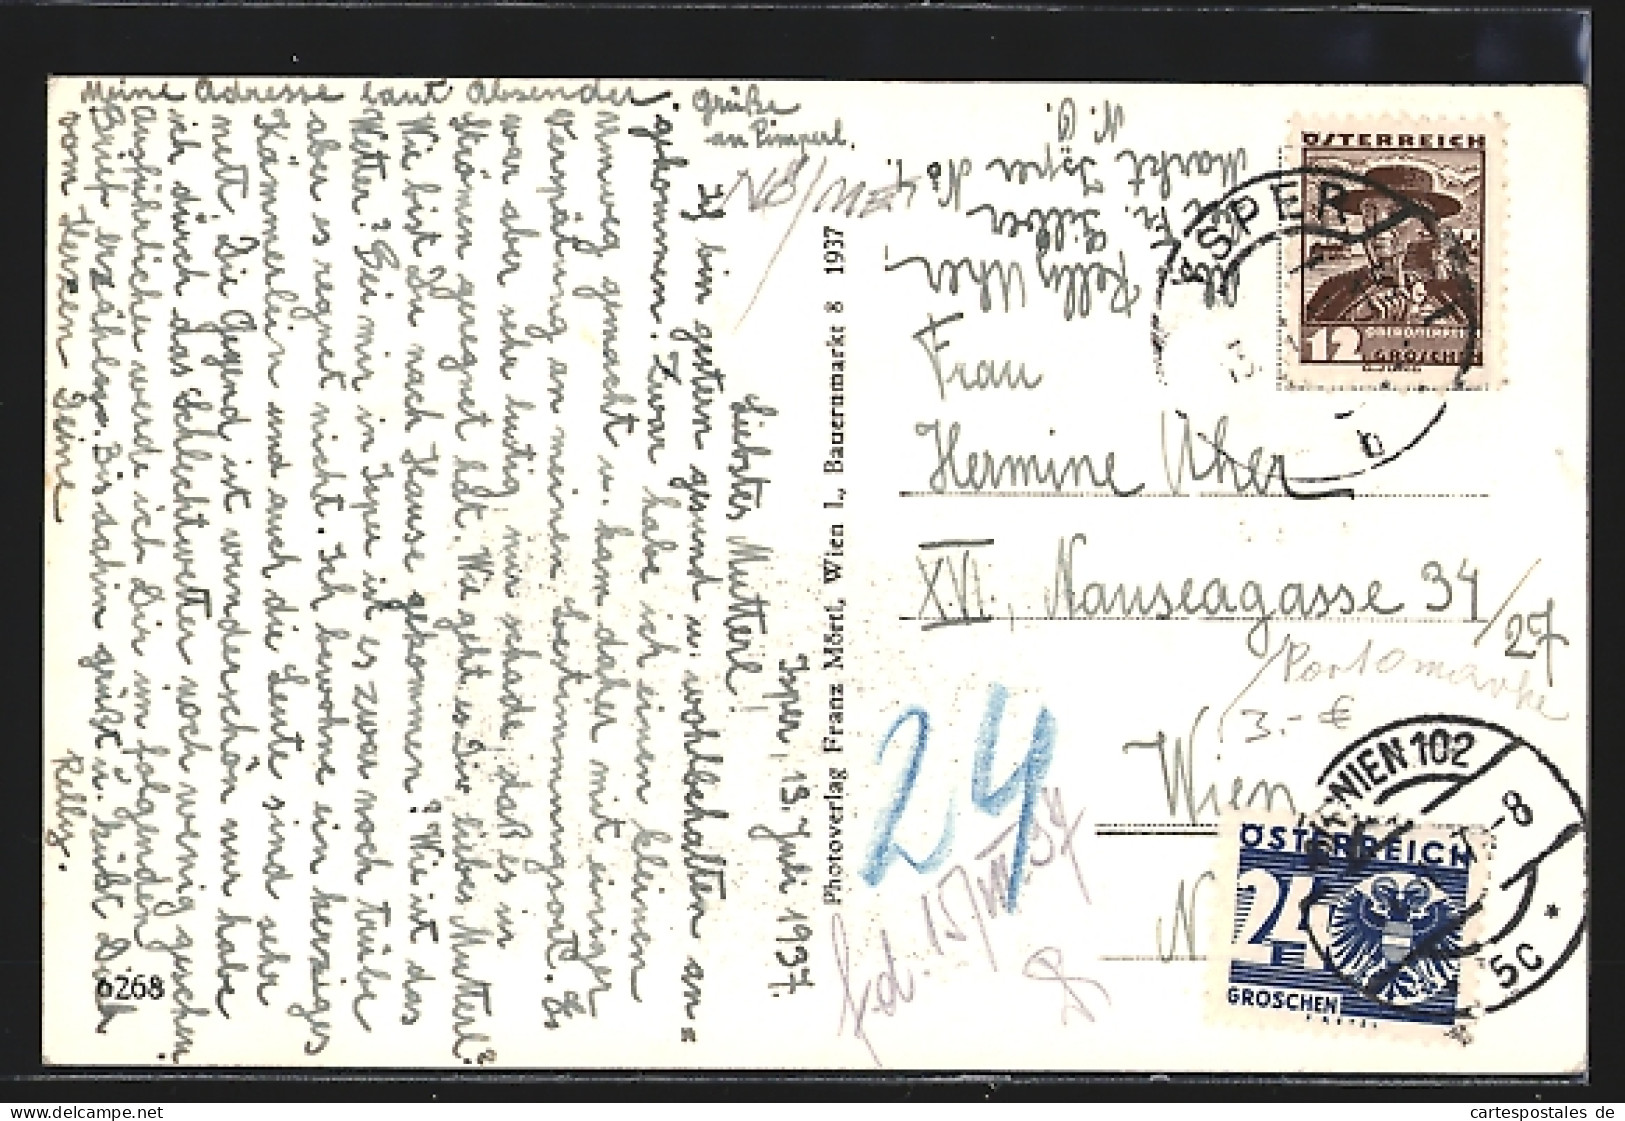 Isper, 13. Juli 1937.
Liebstes Mutterl!
Ich bin gestern gesund u. wohlbehalten an=
gekommen. Zwar habe ich einen kleinen
Umweg gemacht u. kam daher mit einiger
Verspätung an meinen Bestimmungsort. Es
war aber sehr lustig, nur schade, daß es in
Strömen geregnet hat. Wie geht es Dir, liebes Mutterl?
Wie bist Du nach Hause gekommen? Wie ist das
Wetter? Bei mir in Isper ist es zwar noch trübe
aber es regnet nicht. Ich bewohne ein herziges
Kämmerlein und auch die Leute sind sehr
nett. Die Gegend ist wunderschön nur habe
ich durch das Schlechtwetter noch wenig gesehen.
Ausführlicher werde ich Dir im folgenden
Brief erzählen. Bis dahin grüßt u. küßt Dich
vom Herzen Deine
Relly.
Meine Adresse laut Absender.
Grüße
an Pimperl.
6268
Photoverlag Franz Mört, Wien I., Bauernmarkt 8 1937
NÖ/ME
Abs. Relly Uher,
bei Fr. Silber
Markt Isper No 4.
N. Ö.
ÖSTERREICH
12
OBERÖSTERREICH
GROSCHEN
ISPER
b
Frau
Hermine Uher
XVI., Nauseagasse 34/27
Portomarke
3.- €
Wien
N
24
15/VII 37
WIEN 102
-8
5c
ÖSTERREICH
24
GROSCHEN
cartespostales de